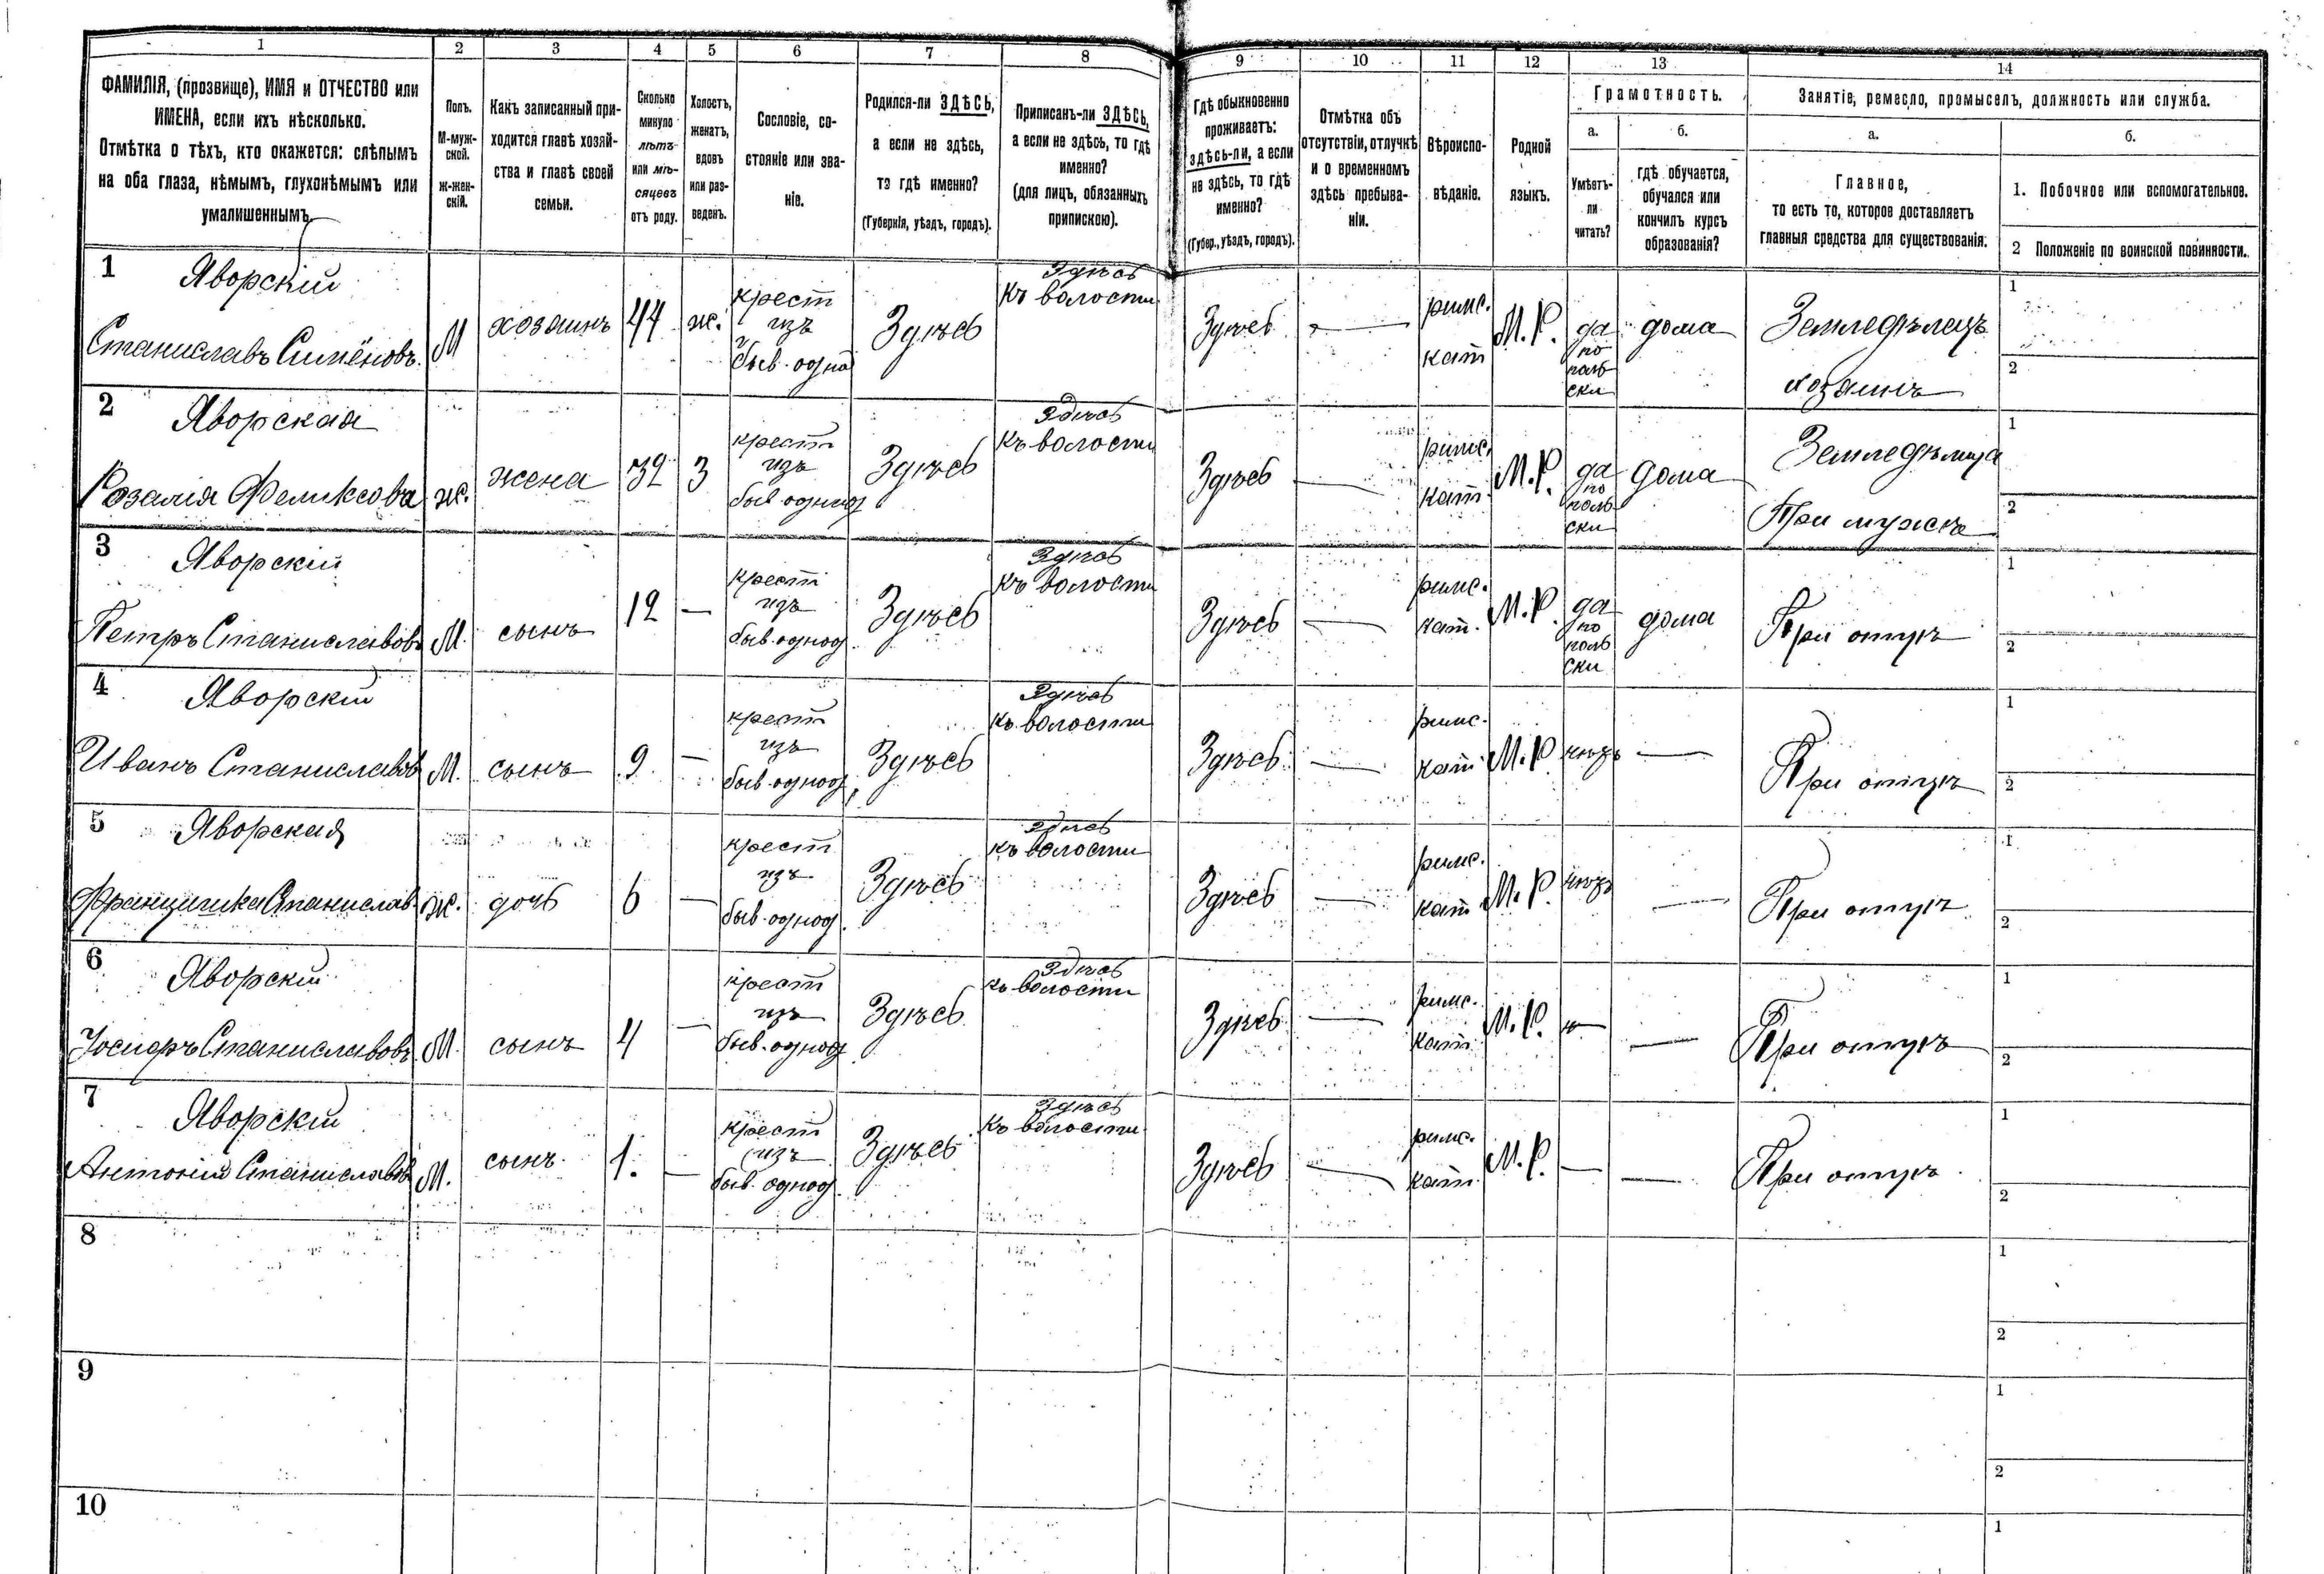 1 2 3 4 5 6 7 8 9 10 11 12 13 14
ФАМИЛІЯ, (прозвище), ИМЯ и ОТЧЕСТВО или
ИМЕНА, если ихъ нѣсколько.
Отмѣтка о тѣхъ, кто окажется: слѣпымъ
на оба глаза, нѣмымъ, глухонѣмымъ или
умалишеннымъ.
Полъ.
М-муж-
ской.
ж-жен-
скій.
Какъ записанный при-
ходится главѣ хозяй-
ства и главѣ своей
семьи.
Сколько
минуло
лѣтъ
или мѣ-
сяцевъ
отъ роду.
Холостъ,
женатъ,
вдовъ
или раз-
веденъ.
Сословіе, со-
стояніе или зва-
ніе.
Родился-ли ЗДѢСЬ,
а если не здѣсь,
то гдѣ именно?
(Губернія, уѣздъ, городъ).
Приписанъ-ли ЗДѢСЬ,
а если не здѣсь, то гдѣ
именно?
(для лицъ, обязанныхъ
припискою).
Гдѣ обыкновенно
проживаетъ:
здѣсь-ли, а если
не здѣсь, то гдѣ
именно?
(Губер., уѣздъ, городъ).
Отмѣтка объ
отсутствіи, отлучкѣ
и о временномъ
здѣсь пребыва-
ніи.
Вѣроиспо-
вѣданіе.
Родной
языкъ.
Грамотность.
а.
Умѣетъ-
ли
читать?
б.
гдѣ обучается,
обучался или
кончилъ курсъ
образованія?
Занятіе, ремесло, промыселъ, должность или служба.
а.
Главное,
то есть то, которое доставляетъ
главныя средства для существованія.
б.
1. Побочное или вспомогательное.
2 Положеніе по воинской повинности.
1 Яворскій
Станиславъ Симёновъ
М
хозаинъ
44
ж.
крест
изъ
быв. одно
Здѣсь
Здѣсь
къ волости
Здѣсь
—
римс.
кат
М. Р.
да
по
поль
ски
дома
Земледѣлецъ
хозаинъ
1
2
2 Яворская
Розалія Феликсова
ж.
жена
32
З
крест
изъ
быв. однод
Здѣсь
Здѣсь
къ волости
Здѣсь
—
римс.
кат.
М. Р.
да
по
поль
ски
дома
При мужѣ
1
2
3 Яворскій
Петръ Станиславовъ
М.
сынъ
12
—
крест
изъ
быв. однод.
Здѣсь
Здѣсь
къ волости
Здѣсь
—
римс.
кат.
М. Р.
да
по
поль
ски
дома
При отцѣ
1
2
4 Яворскій
Иванъ Станиславов
М.
сынъ
9
—
крест
изъ
быв. однод.
Здѣсь
Здѣсь
къ волости
Здѣсь
—
римс.
кат
М. Р.
—
При отцѣ
1
2
5 Яворская
Францишка Станислав
ж.
дочь
6
—
крест
изъ
быв. однод.
Здѣсь
Здѣсь
къ волости
Здѣсь
—
римс.
кат
М. Р.
—
При отцѣ
1
2
6 Яворскій
Іосифъ Станиславовъ
М.
сынъ
4
—
крест
изъ
быв. однод
Здѣсь
Здѣсь
къ волости
Здѣсь
—
римс.
кат
М. Р.
—
При отцѣ
1
2
7 Яворскій
Антоній Станиславов
М.
сынъ
1.
—
крест
изъ
быв. однод.
Здѣсь
Здѣсь
къ волости
Здѣсь
—
римс.
кат.
М. Р.
—
—
При отцѣ
1
2
8
1
2
9
1
2
10
1